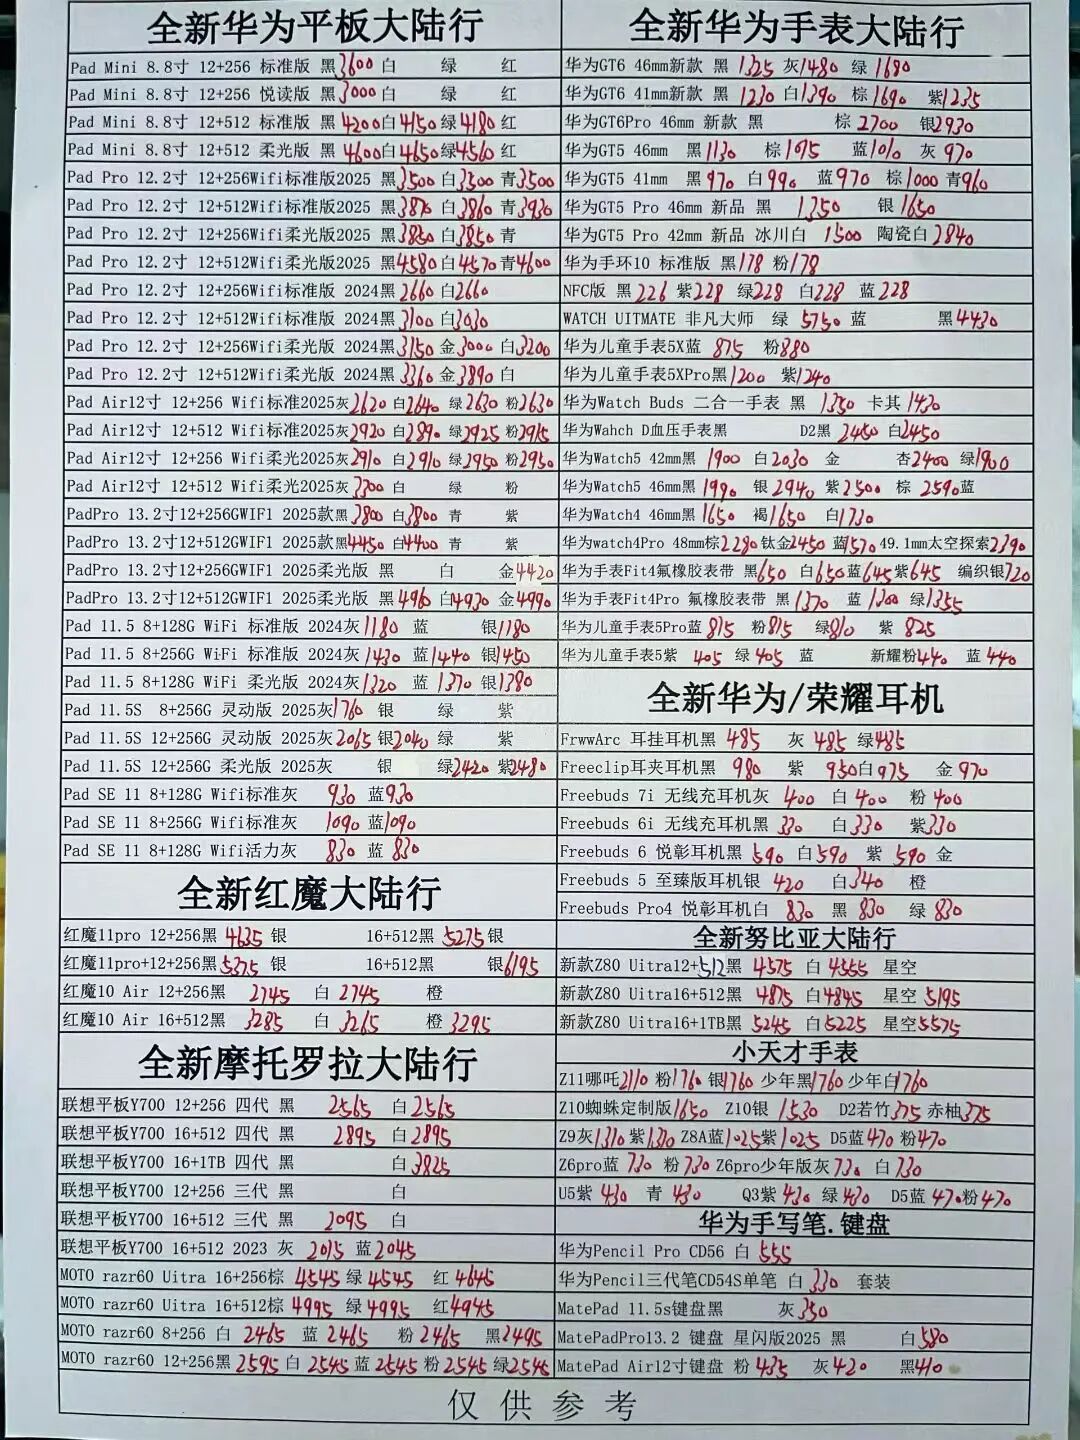 全新华为平板大陆行
Pad Mini 8.8寸 12+256 标准版 黑3600 白 绿 红
Pad Mini 8.8寸 12+256 悦读版 黑3000 白 绿 红
Pad Mini 8.8寸 12+512 标准版 黑4200白4150绿4180红
Pad Mini 8.8寸 12+512 柔光版 黑4600白4650绿4560红
Pad Pro 12.2寸 12+256Wifi标准版2025 黑3500 白3500 青3500
Pad Pro 12.2寸 12+512Wifi标准版2025 黑3870 白3860 青3930
Pad Pro 12.2寸 12+256Wifi柔光版2025 黑3850 白3850 青
Pad Pro 12.2寸 12+512Wifi柔光版2025 黑4580白4570青4600
Pad Pro 12.2寸 12+256Wifi标准版 2024黑2660 白2660
Pad Pro 12.2寸 12+512Wifi标准版 2024黑3100 白3030
Pad Pro 12.2寸 12+256Wifi柔光版 2024黑3150 金3000 白3200
Pad Pro 12.2寸 12+512Wifi柔光版 2024黑3360 金3890 白
Pad Air12寸 12+256 Wifi标准2025灰2620 白2640 绿2630 粉2630
Pad Air12寸 12+512 Wifi标准2025灰2920 白2890 绿2925 粉2915
Pad Air12寸 12+256 Wifi柔光2025灰2910 白2910 绿2950 粉2950
Pad Air12寸 12+512 Wifi柔光2025灰3300 白 绿 粉
PadPro 13.2寸12+256GWIF1 2025款黑3800 白3800 青 紫
PadPro 13.2寸12+512GWIF1 2025款黑4450 白4400 青 紫
PadPro 13.2寸12+256GWIF1 2025柔光版 黑 白 金4420
PadPro 13.2寸12+512GWIF1 2025柔光版 黑4960 白4930 金4990
Pad 11.5 8+128G WiFi 标准版 2024灰1180 蓝 银1180
Pad 11.5 8+256G WiFi 标准版 2024灰1430 蓝1440 银1450
Pad 11.5 8+128G WiFi 柔光版 2024灰1320 蓝 1370 银1380
Pad 11.5S 8+256G 灵动版 2025灰1760 银 绿 紫
Pad 11.5S 12+256G 灵动版 2025灰2065 银2040 绿 紫
Pad 11.5S 12+256G 柔光版 2025灰 银 绿2420 紫2480
Pad SE 11 8+128G Wifi标准灰 930 蓝930
Pad SE 11 8+256G Wifi标准灰 1090 蓝1090
Pad SE 11 8+128G Wifi活力灰 830 蓝 830
全新红魔大陆行
红魔11pro 12+256黑 4635 银 16+512黑 5275银
红魔11pro+12+256黑5375 银 16+512黑 银6195
红魔10 Air 12+256黑 2745 白 2745 橙
红魔10 Air 16+512黑 3285 白 3265 橙 3295
全新摩托罗拉大陆行
联想平板Y700 12+256 四代 黑 2565 白2565
联想平板Y700 16+512 四代 黑 2895 白2895
联想平板Y700 16+1TB 四代 黑 白3825
联想平板Y700 12+256 三代 黑 白
联想平板Y700 16+512 三代 黑 2095 白
联想平板Y700 16+512 2023 灰 2015 蓝2045
MOTO razr60 Uitra 16+256棕 4545 绿 4545 红 4645
MOTO razr60 Uitra 16+512棕 4995 绿 4995 红4945
MOTO razr60 8+256 白 2465 蓝 2465 粉 2465 黑2495
MOTO razr60 12+256黑2595 白 2545 蓝 2545 粉 2545 绿2545
全新华为手表大陆行
华为GT6 46mm新款 黑 1325 灰1480 绿 1680
华为GT6 41mm新款 黑 1230 白1390 棕1690 紫1235
华为GT6Pro 46mm 新款 黑 棕 2700 银2930
华为GT5 46mm 黑1130 棕1075 蓝1010 灰 970
华为GT5 41mm 黑970 白990 蓝970 棕1000 青960
华为GT5 Pro 46mm 新品 黑 1350 银 1650
华为GT5 Pro 42mm 新品 冰川白 1500 陶瓷白2840
华为手环10 标准版 黑178 粉178
NFC版 黑226 紫228 绿228 白228 蓝 228
WATCH UITMATE 非凡大师 绿 5750 蓝 黑4430
华为儿童手表5X蓝 875 粉880
华为儿童手表5XPro黑1200 紫1240
华为Watch Buds 二合一手表 黑 1350 卡其1430
华为Wahch D血压手表黑 D2黑 2450 白2450
华为Watch5 42mm黑 1900 白2030 金 杏2400 绿1900
华为Watch5 46mm黑1990 银 2940 紫2500 棕 2590蓝
华为Watch4 46mm黑1650 褐1650 白1730
华为watch4Pro 48mm棕2280钛金2450 蓝1570 49.1mm太空探索2390
华为手表Fit4氟橡胶表带 黑650 白650蓝645紫645 编织银720
华为手表Fit4Pro 氟橡胶表带 黑1370 蓝 1300 绿1355
华为儿童手表5Pro蓝815 粉815 绿810 紫 825
华为儿童手表5紫 405 绿 405 蓝 新耀粉440 蓝 440
全新华为/荣耀耳机
FrwwArc 耳挂耳机黑 485 灰 485 绿485
Freeclip耳夹耳机黑 980 紫 950白975 金 970
Freebuds 7i 无线充耳机灰 400 白 400 粉 400
Freebuds 6i 无线充耳机黑 330 白330 紫330
Freebuds 6 悦彰耳机黑 590 白590 紫 590 金
Freebuds 5 至臻版耳机银 420 白340 橙
Freebuds Pro4 悦彰耳机白 830 黑 830 绿 830
全新努比亚大陆行
新款Z80 Uitra12+512黑 4575 白 4555 星空
新款Z80 Uitra16+512黑 4875 白4845 星空 5195
新款Z80 Uitra16+1TB黑 5245 白5225 星空5575
小天才手表
Z11哪吒2110 粉1760 银1760 少年黑1760 少年白1760
Z10蜘蛛定制版1650 Z10银 1530 D2若竹375 赤柚375
Z9灰1310紫1310 Z8A蓝1025紫1025 D5蓝470 粉470
Z6pro蓝 730 粉730 Z6pro少年版灰730 白730
U5紫 430 青 430 Q3紫430 绿430 D5蓝 470粉470
华为手写笔.键盘
华为Pencil Pro CD56 白 555
华为Pencil三代笔CD54S单笔 白 330 套装
MatePad 11.5s键盘黑 灰350
MatePadPro13.2 键盘 星闪版2025 黑 白580
MatePad Air12寸键盘 粉 435 灰420 黑410
仅供参考